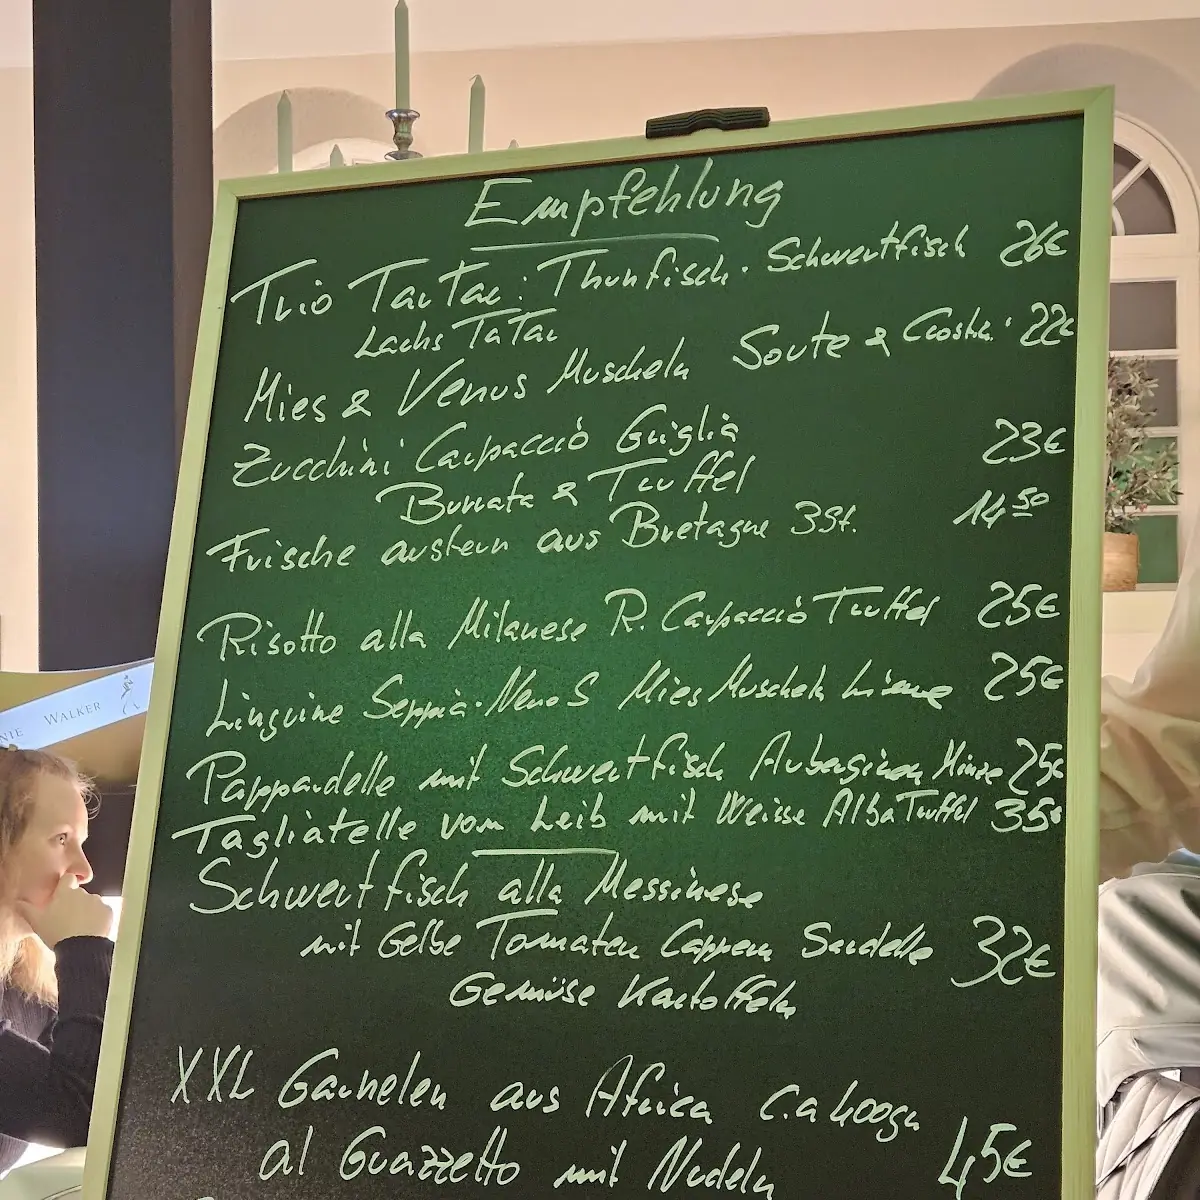 Empfehlung
Trio TaTar: Thunfisch. Schwertfisch 26€
Lachs TaTar
Mies & Venus Muscheln Soute & Crosta. 22€
Zucchini Carpacciò Griglia 23€
Burrata & Trüffel
Frische austern aus Bretagne 3St. 14 50
Risotto alla Milanese R. Carpacciò Trüffel 25€
Linguine Seppia. Nero S Mies Muscheln 25€
Pappardelle mit Schwertfisch Auberginen Minze 25€
Tagliatelle vom Leib mit Weisse Alba Trüffel 35€
Schwertfisch alla Messinese
mit Gelbe Tomaten Cappern Sardelle 32€
Gemüse Kartoffeln
XXL Garnelen aus Africa c.a 400gr
al Guazzetto mit Nudeln 45€
NIE WALKER